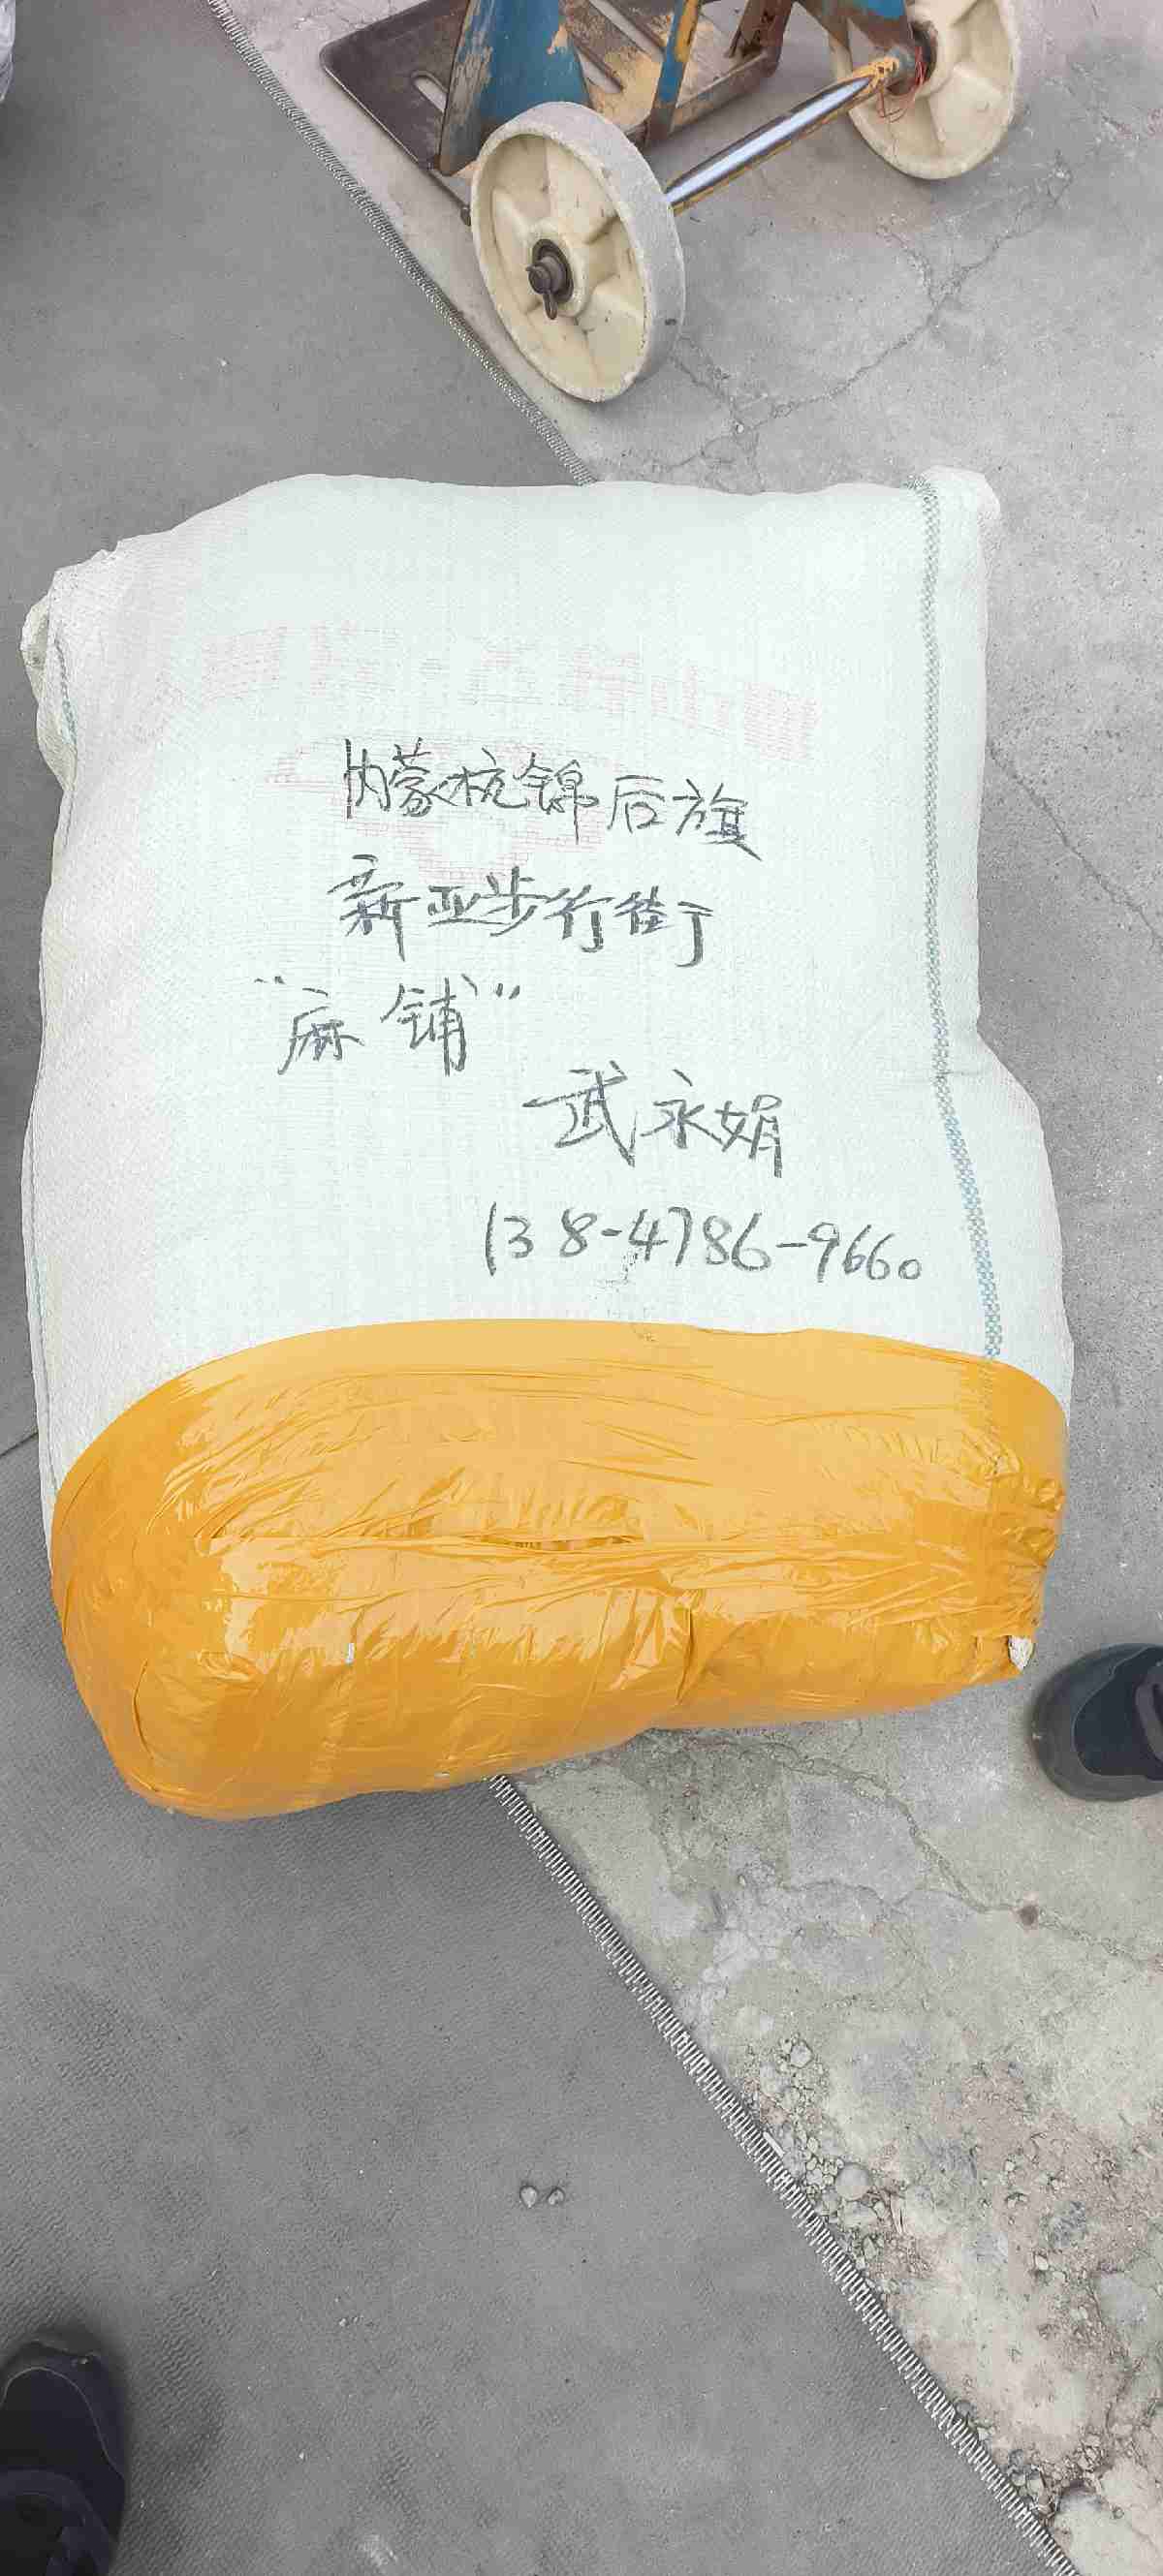 内蒙杭锦后旗
新亚步行街
“麻铺”
武永娟
138-4786-9660